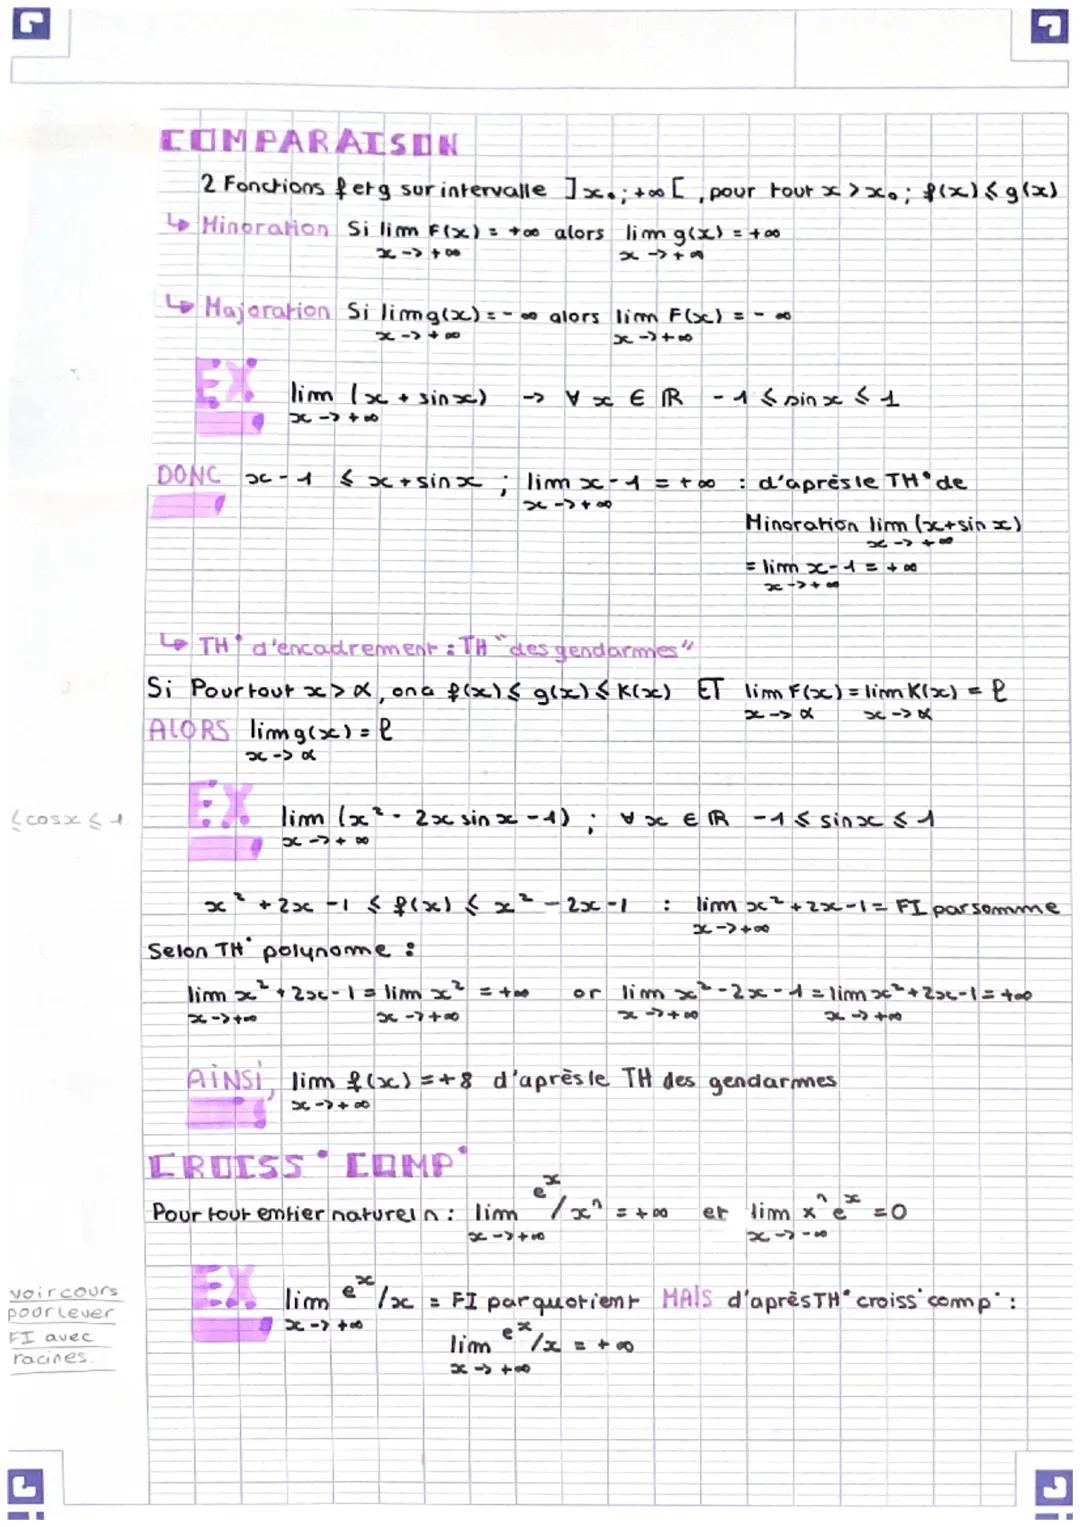 COMPARAISON
2 Fonctions f et g sur intervalle ]x₀ ; +∞ [ , pour tout x > x₀ ; f(x) ⩽ g(x)
↳ Minoration Si lim F(x) = +∞ alors lim g(x) = +∞
x -> +∞ x -> +∞
↳ Majoration Si lim g(x) = - ∞ alors lim F(x) = - ∞
x -> +∞ x -> +∞
EX lim (x + sin x) -> ∀ x ∈ ℝ - 1 ⩽ sin x ⩽ 1
x -> +∞
DONC x - 1 ⩽ x + sin x ; lim x - 1 = +∞ : d'après le TH° de
x -> +∞
Minoration lim (x+sin x)
x -> +∞
= lim x - 1 = +∞
x -> +∞
↳ TH° d'encadrement : TH "des gendarmes"
Si Pour tout x > α, on a f(x) ⩽ g(x) ⩽ K(x) ET lim F(x) = lim K(x) = ℓ
x -> α x -> α
ALORS lim g(x) = ℓ
x -> α
⩽ cosx ⩽ 1
EX lim (x² - 2x sin x - 1) ; ∀ x ∈ ℝ -1 ⩽ sin x ⩽ 1
x -> +∞
x² + 2x - 1 ⩽ f(x) ⩽ x² - 2x - 1 : lim x² + 2x - 1 = FI par somme
x -> +∞
Selon TH° polynome :
lim x² + 2x - 1 = lim x² = +∞ or lim x² - 2x - 1 = lim x² + 2x - 1 = +∞
x -> +∞ x -> +∞ x -> +∞ x -> +∞
AINSI, lim f(x) = +8 d'après le TH des gendarmes
x -> +∞
CROISS° COMP°
Pour tout entier naturel n : lim eˣ/xⁿ = +∞ et lim xⁿeˣ = 0
x -> +∞ x -> -∞
voir cours
pour lever
FI avec
racines.
EX lim eˣ/x = FI par quotient MAIS d'après TH° croiss° comp° :
x -> +∞
lim eˣ/x = +∞
x -> +∞